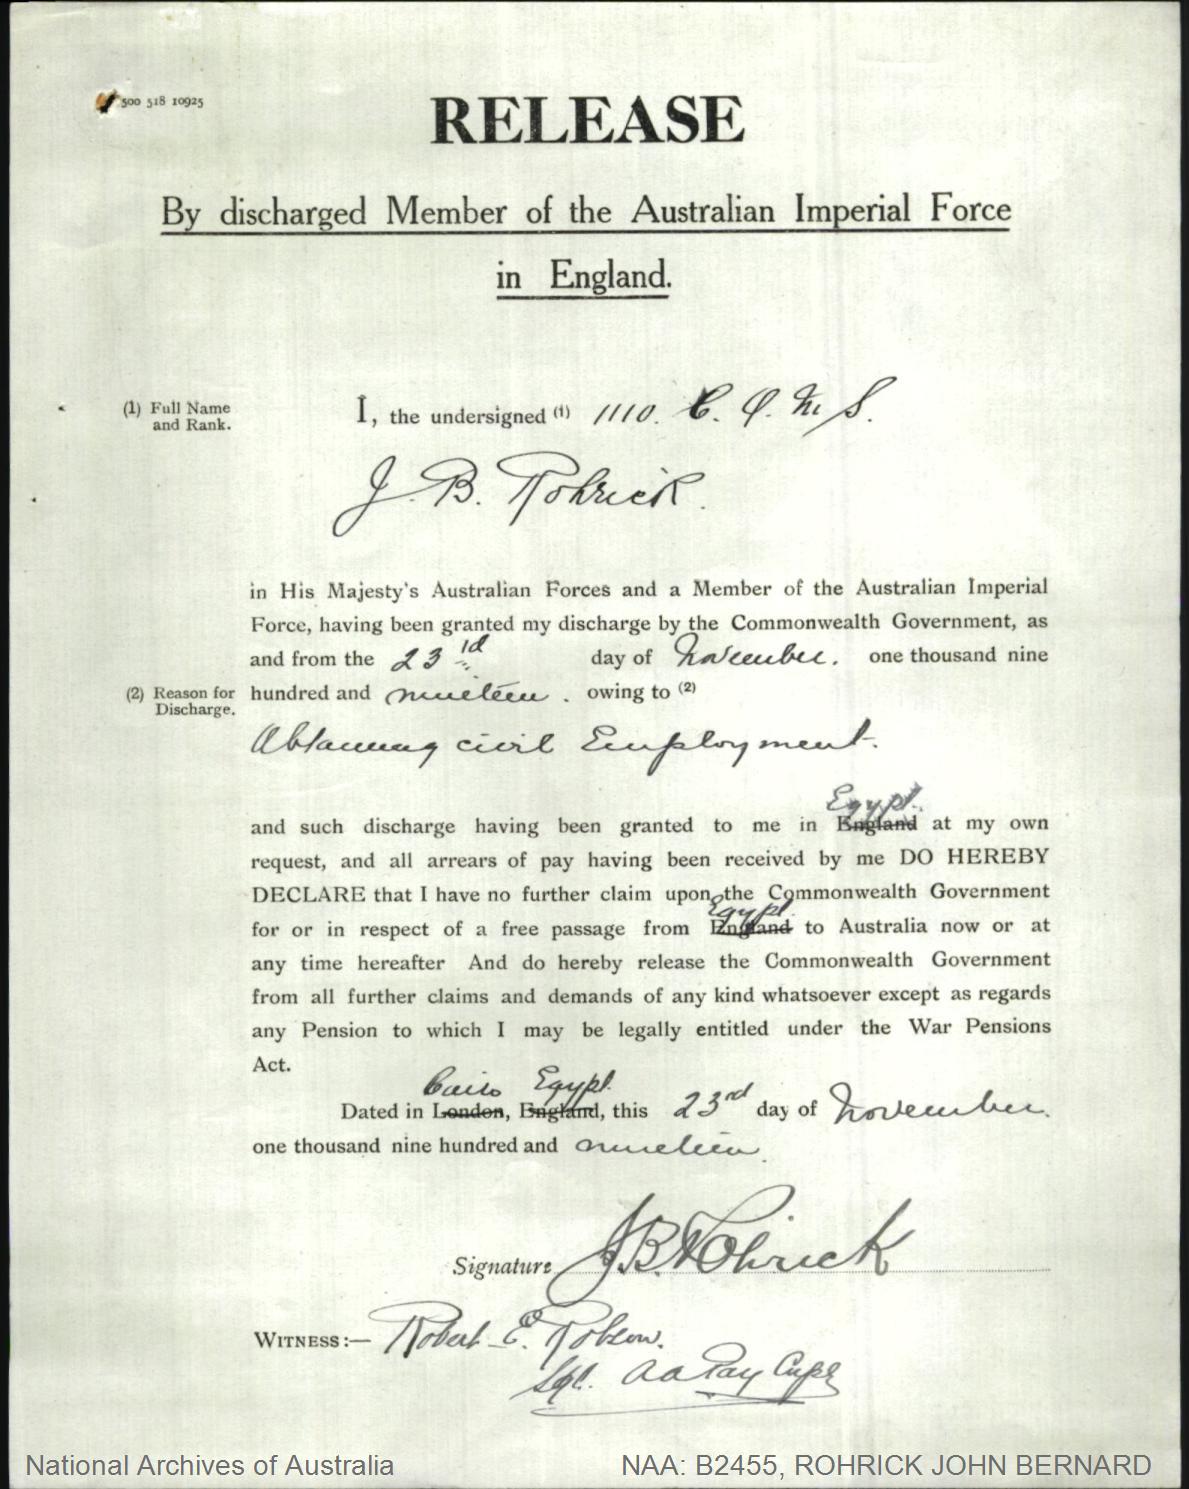 500 518 10925
RELEASE
By discharged Member of the Australian Imperial Force
in England.
(1) Full Name
and Rank.
I, the undersigned (1) 1110. C. Q. M. S.
J. B. Rohrick.
in His Majesty's Australian Forces and a Member of the Australian Imperial
Force, having been granted my discharge by the Commonwealth Government, as
and from the 23rd day of November. one thousand nine
(2) Reason for
Discharge.
hundred and nineteen. owing to (2)
Obtaining civil Employment.
Egypt.
and such discharge having been granted to me in England at my own
request, and all arrears of pay having been received by me DO HEREBY
DECLARE that I have no further claim upon the Commonwealth Government
Egypt.
for or in respect of a free passage from England to Australia now or at
any time hereafter And do hereby release the Commonwealth Government
from all further claims and demands of any kind whatsoever except as regards
any Pension to which I may be legally entitled under the War Pensions
Act.
Cairo Egypt.
Dated in London, England, this 23rd day of November.
one thousand nine hundred and nineteen.
Signature J.B. Rohrick
WITNESS:— Robert E. Robson.
Sgt. AA Pay Corps
National Archives of Australia
NAA: B2455, ROHRICK JOHN BERNARD